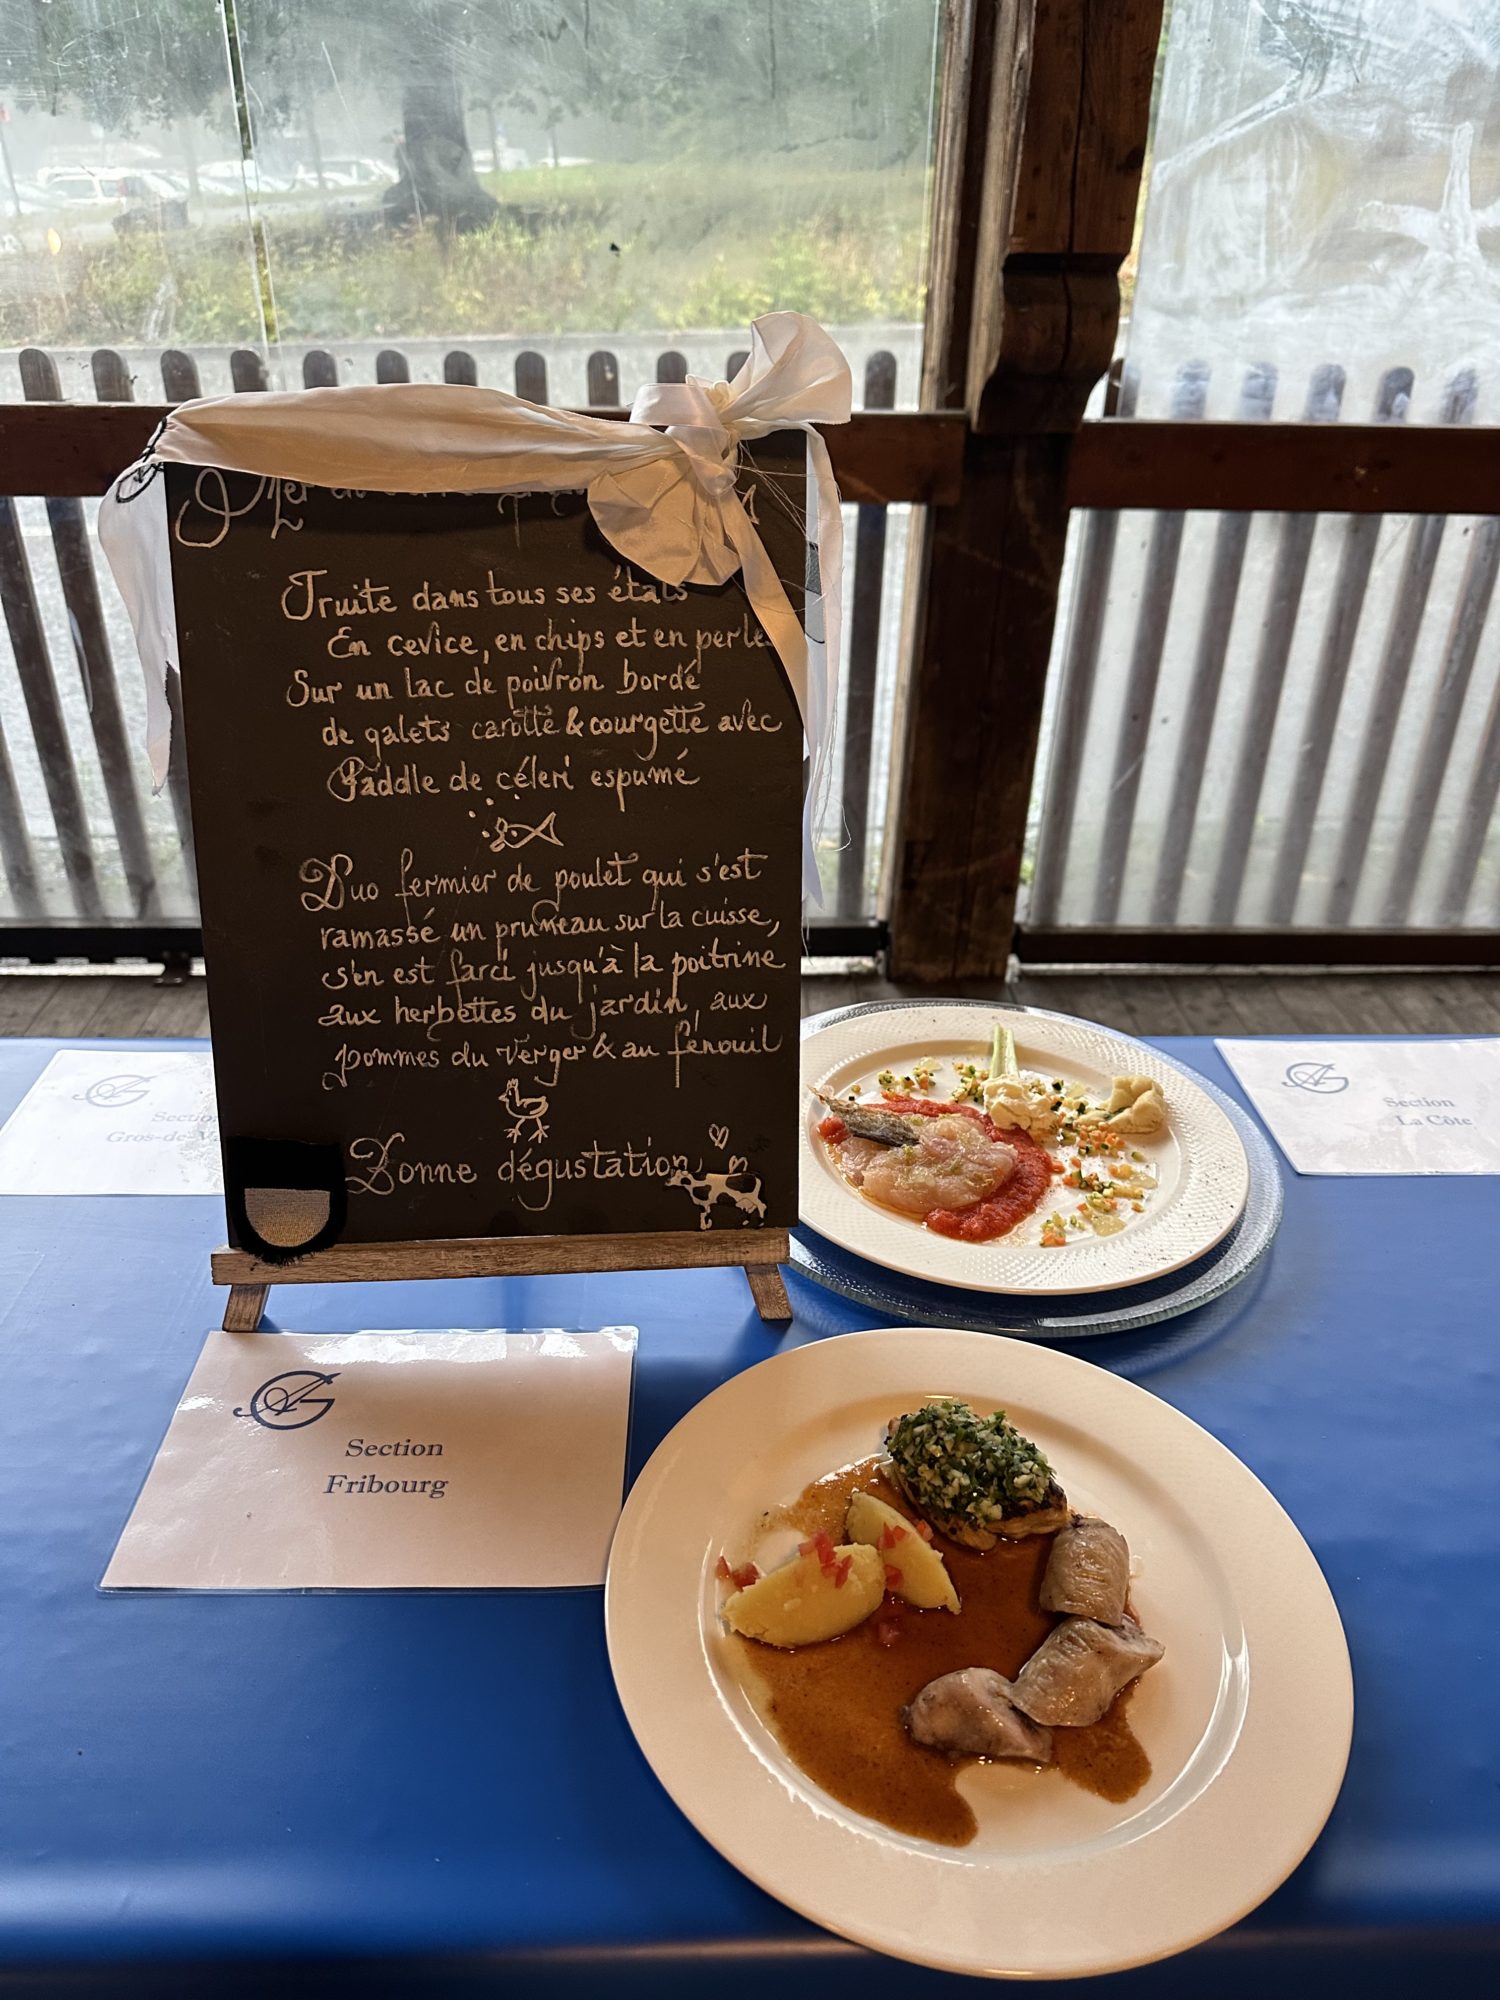 Truite dans tous ses états
En cevice, en chips et en perle
Sur un lac de poivron bordé
de galets carotte & courgette avec
Paddle de céleri espumé
Duo fermier de poulet qui s'est
ramassé un pruneau sur la cuisse,
s'en est farci jusqu'à la poitrine
aux herbettes du jardin, aux
pommes du verger & au fenouil
Bonne dégustation
Section
Gros-de-Va
Section
La Côte
Section
Fribourg